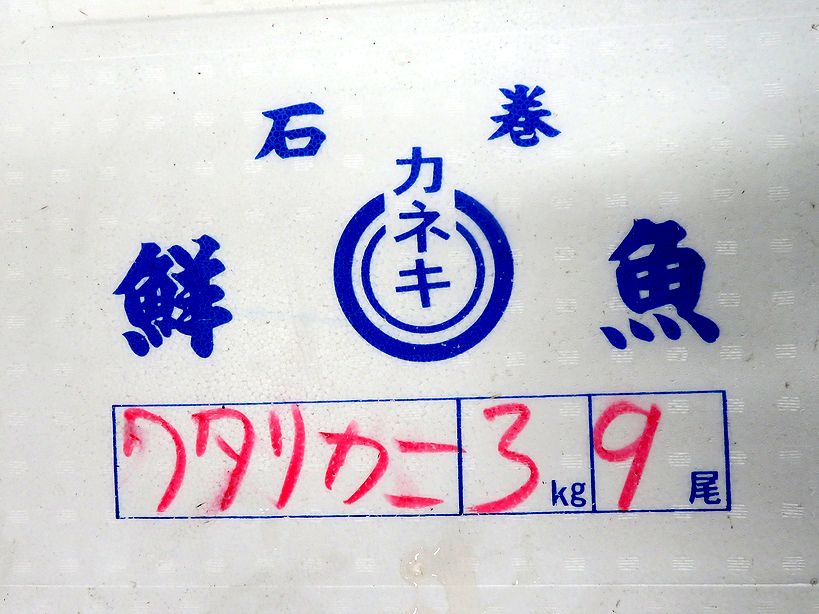 石巻
カネキ
鮮魚
ワタリカニ 3kg 9尾